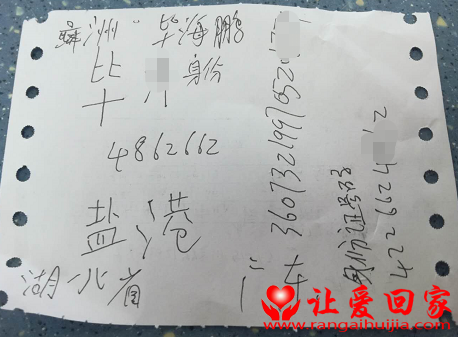 毕海鹏
比 身份
十八
4862662
盐港
湖北省
3607321997052
身份证号码
4226624 2
广东
让爱回家
www.rangaihuijia.com